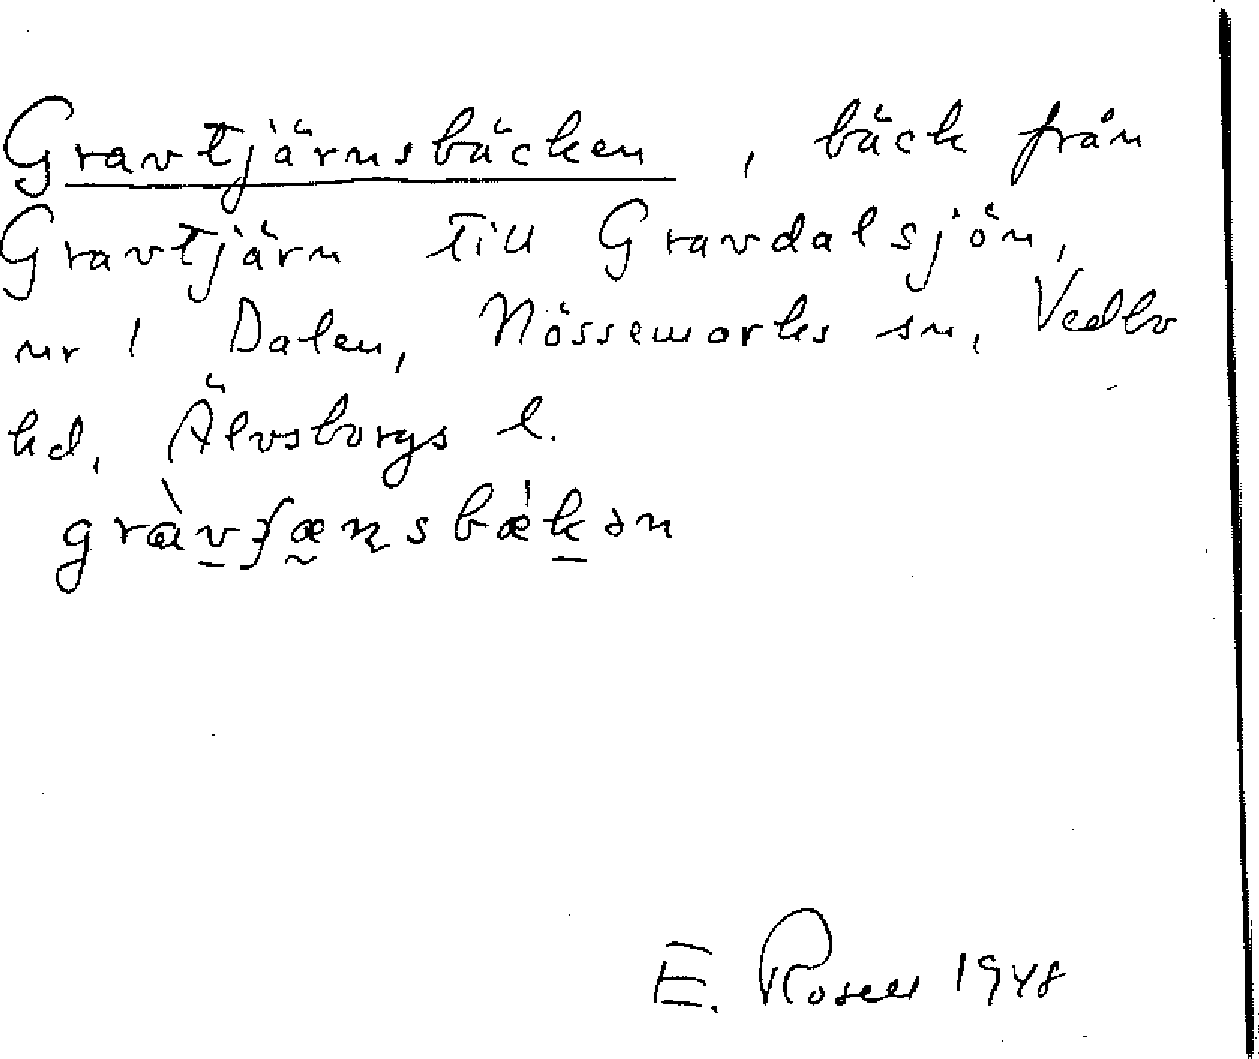 Gravtjärnsbäcken, bäck från
Gravtjärn till Gravdalsjön,
nr 1 Dalen, Nössemarks sn, Vedbo
hd, Älvsborgs l.
E. Rosell 1948